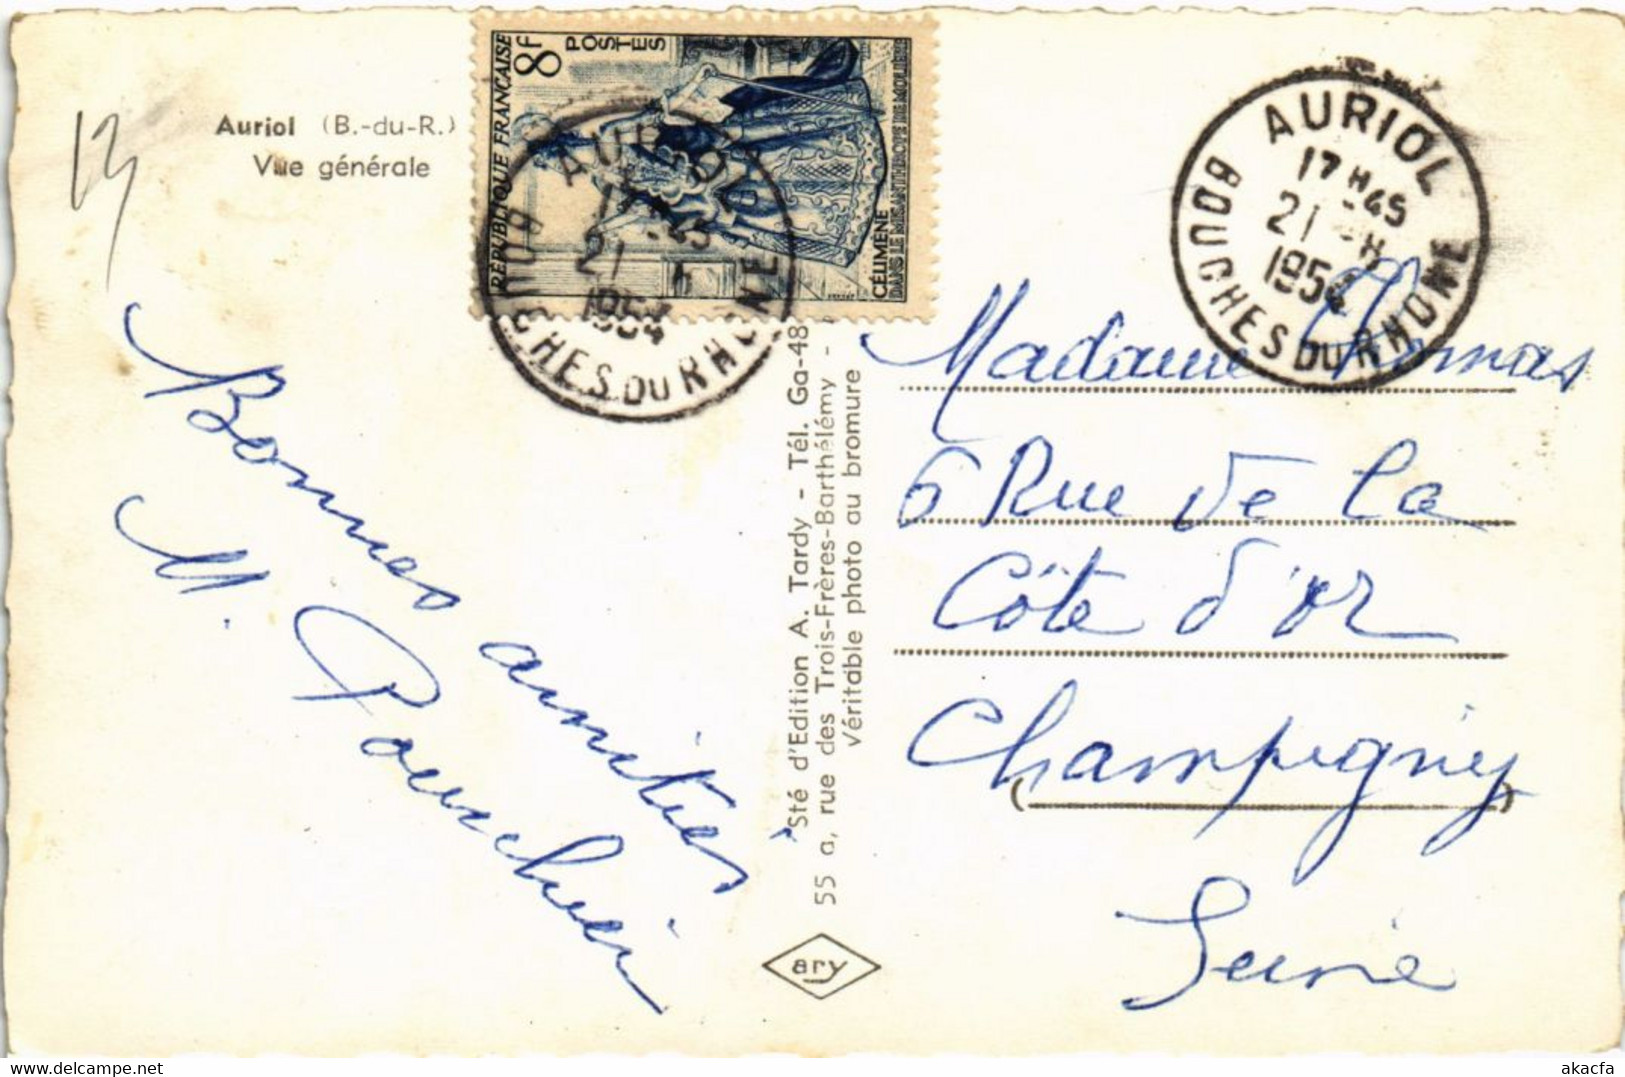 13
Auriol (B.-du-R.)
Vue générale
RÉPUBLIQUE FRANÇAISE
8F
POSTES
CÉLIMÈNE
DANS LE MISANTHROPE DE MOLIÈRE
AURIOL
17 H 45
21
1954
BOUCHES DU RHONE
AURIOL
17 H 45
21
1954
BOUCHES DU RHONE
Bonnes amitiés
M.
Sté d'Edition A. Tardy - Tél. Ga-48
55 a, rue des Trois-Frères-Barthélémy -
Véritable photo au bromure
ary
Madame Thomas
6 Rue de la
Côte d'or
Champigny
Seine
https://www.delcampe.net
akacfa